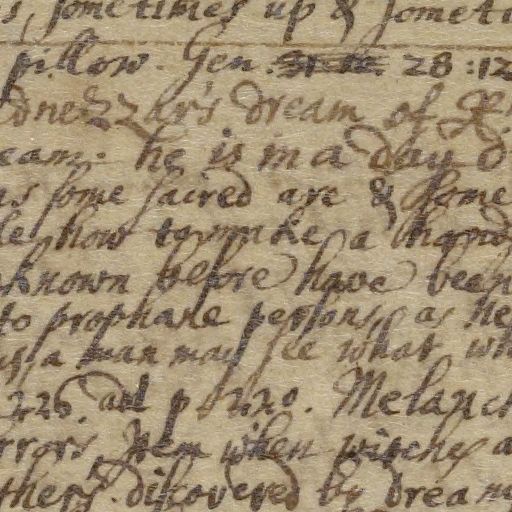 s, sometimes up & someti
pillow. Gen. 28:12
dnezzar's dream of
eam. he is in a day d
as some sacred are & some
le how to make a
known before have been
to prophane persons, as ne
us, a man may see what wh
426. and p 220. Melanch
rrors, Item when witches a
thers. discovered by dream